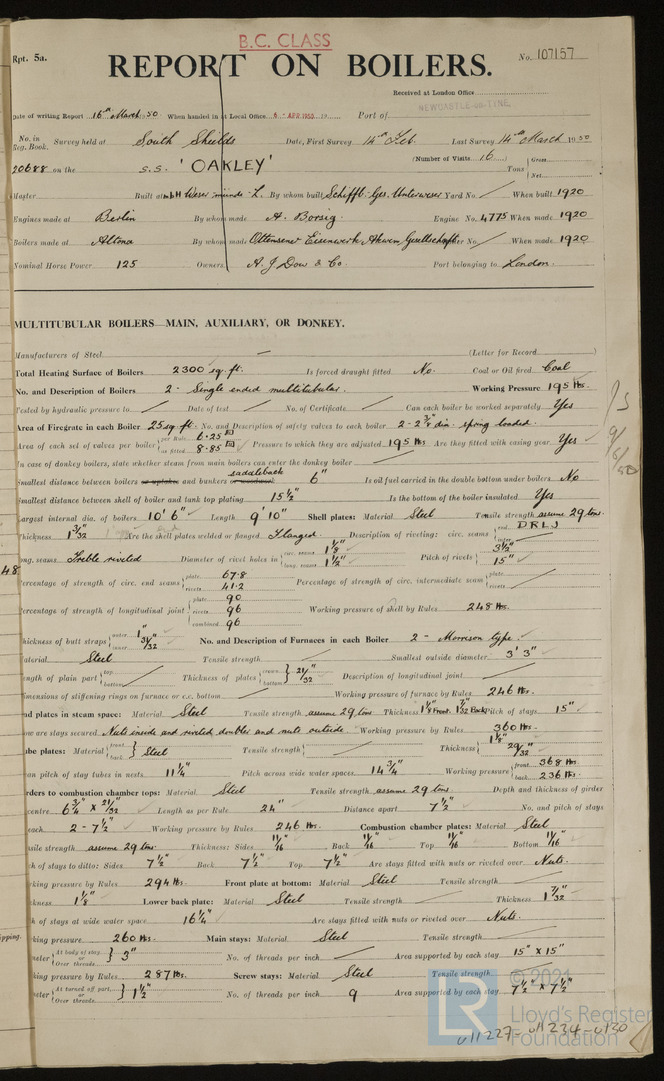 B.C. CLASS
Rpt. 5a.
REPORT ON BOILERS.
No. 107157
Received at London Office
NEWCASTLE-ON-TYNE
Date of writing Report 16th March 1950 When handed in at Local Office 6 - APR 1950 19 Port of
No. in Reg. Book. Survey held at South Shields Date, First Survey 14th Feb. Last Survey 14th March 1950
20688 on the S.S. 'OAKLEY' (Number of Visits 16) Tons { Gross Net
Master Built at By whom built Schiffb. Ges. Unterweser Yard No. When built 1920
Engines made at Berlin By whom made A. Borsig. Engine No. 4775 When made 1920
Boilers made at Altona By whom made Ottensener Eisenwerk When made 1920
Nominal Horse Power 125 Owners A. J Dow & Co. Port belonging to London.
MULTITUBULAR BOILERS—MAIN, AUXILIARY, OR DONKEY.
Manufacturers of Steel (Letter for Record )
Total Heating Surface of Boilers 2300 sq. ft. Is forced draught fitted No. Coal or Oil fired Coal
No. and Description of Boilers 2 - Single ended multitubular. Working Pressure 195 lbs.
Tested by hydraulic pressure to Date of test No. of Certificate Can each boiler be worked separately Yes
Area of Firegrate in each Boiler 25 sq. ft. No. and Description of safety valves to each boiler 2 - 2 3/8" dia. spring loaded.
Area of each set of valves per boiler { per Rule 6.25 as fitted 8.85 Pressure to which they are adjusted 195 lbs Are they fitted with easing gear Yes
In case of donkey boilers, state whether steam from main boilers can enter the donkey boiler
Smallest distance between boilers or uptakes and bunkers saddleback 6" Is oil fuel carried in the double bottom under boilers No
Smallest distance between shell of boiler and tank top plating 15 1/2" Is the bottom of the boiler insulated Yes
Largest internal dia. of boilers 10' 6" Length 9' 10" Shell plates: Material Steel Tensile strength assume 29 tons
Thickness 1 3/32" Are the shell plates welded or flanged Flanged Description of riveting: circ. seams { end DRLJ inter.
long. seams Treble riveted Diameter of rivet holes in { circ. seams 1 1/8" long. seams 1 1/2" Pitch of rivets { 3 1/2" 15"
48
Percentage of strength of circ. end seams { plate 67.8 rivets 41.2 Percentage of strength of circ. intermediate seam { plate rivets
Percentage of strength of longitudinal joint { plate 90 rivets 96 combined 96 Working pressure of shell by Rules 248 lbs.
Thickness of butt straps { outer 1" inner 31/32" No. and Description of Furnaces in each Boiler 2 - Morrison type.
Material Steel Tensile strength Smallest outside diameter 3' 3"
Length of plain part { top bottom Thickness of plates { crown bottom } 21/32" Description of longitudinal joint
Dimensions of stiffening rings on furnace or c.c. bottom Working pressure of furnace by Rules 246 lbs.
End plates in steam space: Material Steel Tensile strength assume 29 tons Thickness 1 1/8" Front. 1 7/32" Back Pitch of stays 15"
How are stays secured Nuts inside and riveted doubles and nuts outside Working pressure by Rules 360 lbs.
Tube plates: Material { front back } Steel Tensile strength { Thickness { 1 1/8" 29/32"
Mean pitch of stay tubes in nests 11 1/4" Pitch across wide water spaces 14 3/4" Working pressure { front 368 lbs back 236 lbs
Girders to combustion chamber tops: Material Steel Tensile strength assume 29 tons. Depth and thickness of girder
centre 6 3/4" x 21/32" Length as per Rule 24" Distance apart 7 1/2" No. and pitch of stays
each 2 - 7 1/2" Working pressure by Rules 246 lbs. Combustion chamber plates: Material Steel
Tensile strength assume 29 tons Thickness: Sides 11/16" Back 11/16" Top 11/16" Bottom 11/16"
Pitch of stays to ditto: Sides 7 1/2" Back 7 1/2" Top 7 1/2" Are stays fitted with nuts or riveted over Nuts.
Working pressure by Rules 294 lbs Front plate at bottom: Material Steel Tensile strength
Thickness 1 1/8" Lower back plate: Material Steel Tensile strength Thickness 1 7/32"
Pitch of stays at wide water space 16 1/4" Are stays fitted with nuts or riveted over Nuts.
Working pressure 260 lbs. Main stays: Material Steel Tensile strength
Diameter { At body of stay or Over threads } 3" No. of threads per inch Area supported by each stay 15" x 15"
Working pressure by Rules 287 lbs. Screw stays: Material Steel Tensile strength
Diameter { At turned off part or Over threads } 1 1/2" No. of threads per inch 9 Area supported by each stay 7 1/2" x 7 1/2"
© 2021
LR
Lloyd's Register
Foundation